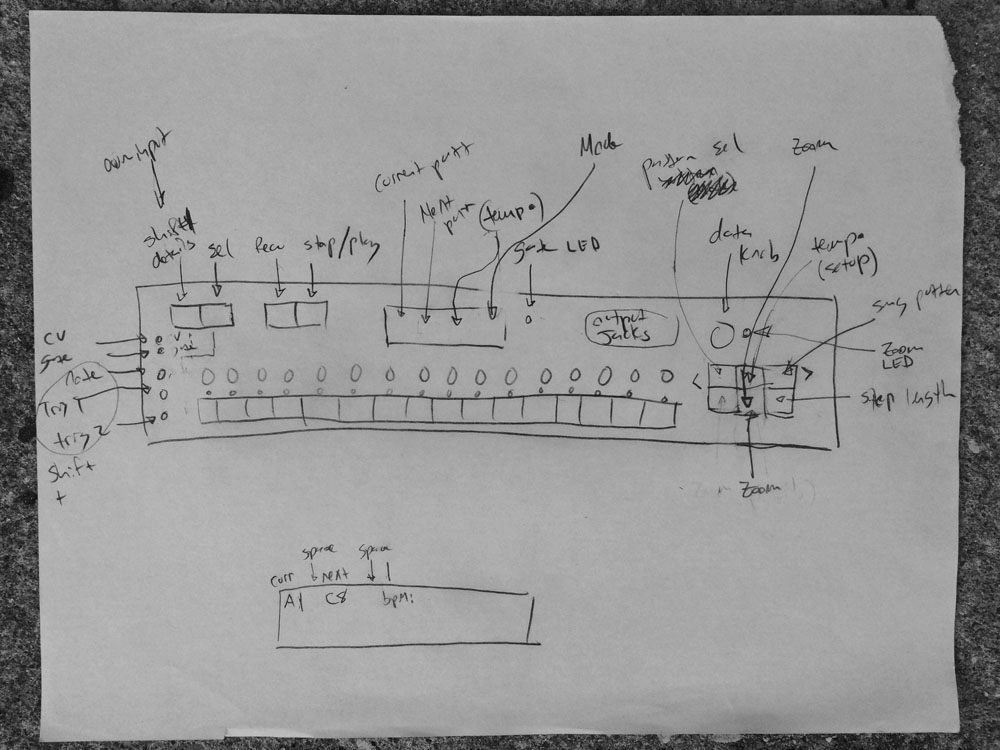 Mode
sel
Zoom
Current patt
Next
patt
(tempo)
shift/
details
sel
stop/play
gate LED
data
knob
tempo
(setup)
output
Jacks
CV
gate
note
Trig 1
trig 2
shift
+
< >
Zoom
LED
step length
Zoom
space
space
curr
next
A1
C8
bpm: